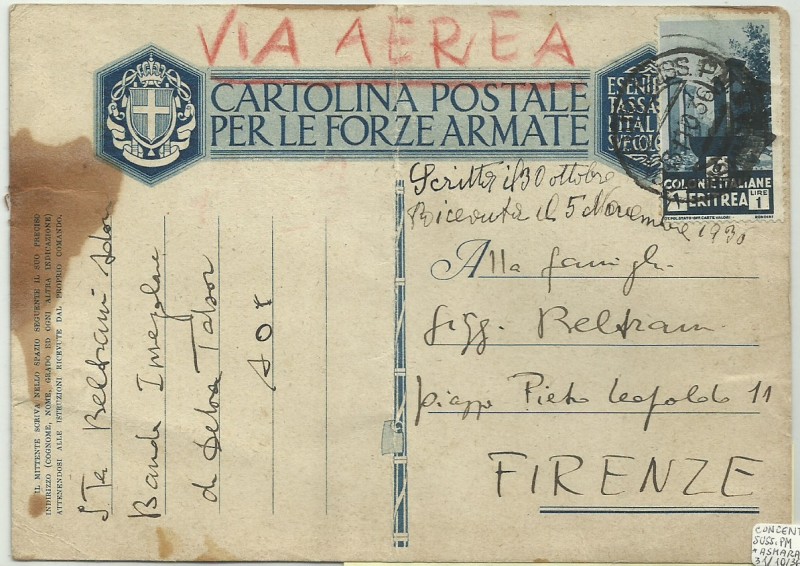 VIA AEREA
CARTOLINA POSTALE
PER LE FORZE ARMATE
ESENTE
TASSA
ITAL
SUSS. P
COLONIE ITALIANE
1 ERITREA LIRE 1
Scritta il 30 ottobre
Ricevuta il 5 Novembre 1936
Alla famiglia
Sigg. Beltrami
piazza Pietro Leopoldo 11
FIRENZE
IL MITTENTE SCRIVA NELLO SPAZIO SEGUENTE IL SUO PRECISO
INDIRIZZO (COGNOME, NOME, GRADO ED OGNI ALTRA INDICAZIONE)
ATTENENDOSI ALLE ISTRUZIONI RICEVUTE DAL PROPRIO COMANDO.
S. Te Beltrami
Banda Irregolare
di Debra Tabor
AOI
CONCENT
SUSS. PM
*ASMARA
31/10/36